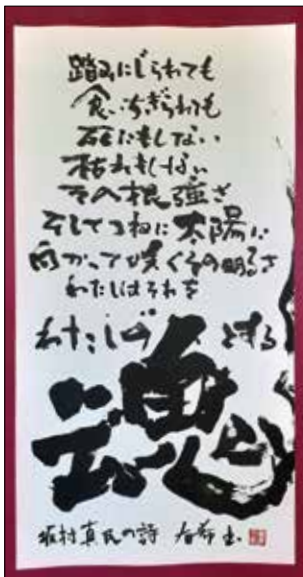 踏みにじられても
食いちぎられても
死にもしない
枯れもしない
その根強さ
そしてつねに太陽に
向かって咲くその明るさ
わたしはそれを
わたしの魂とする
坂村真民の詩 書